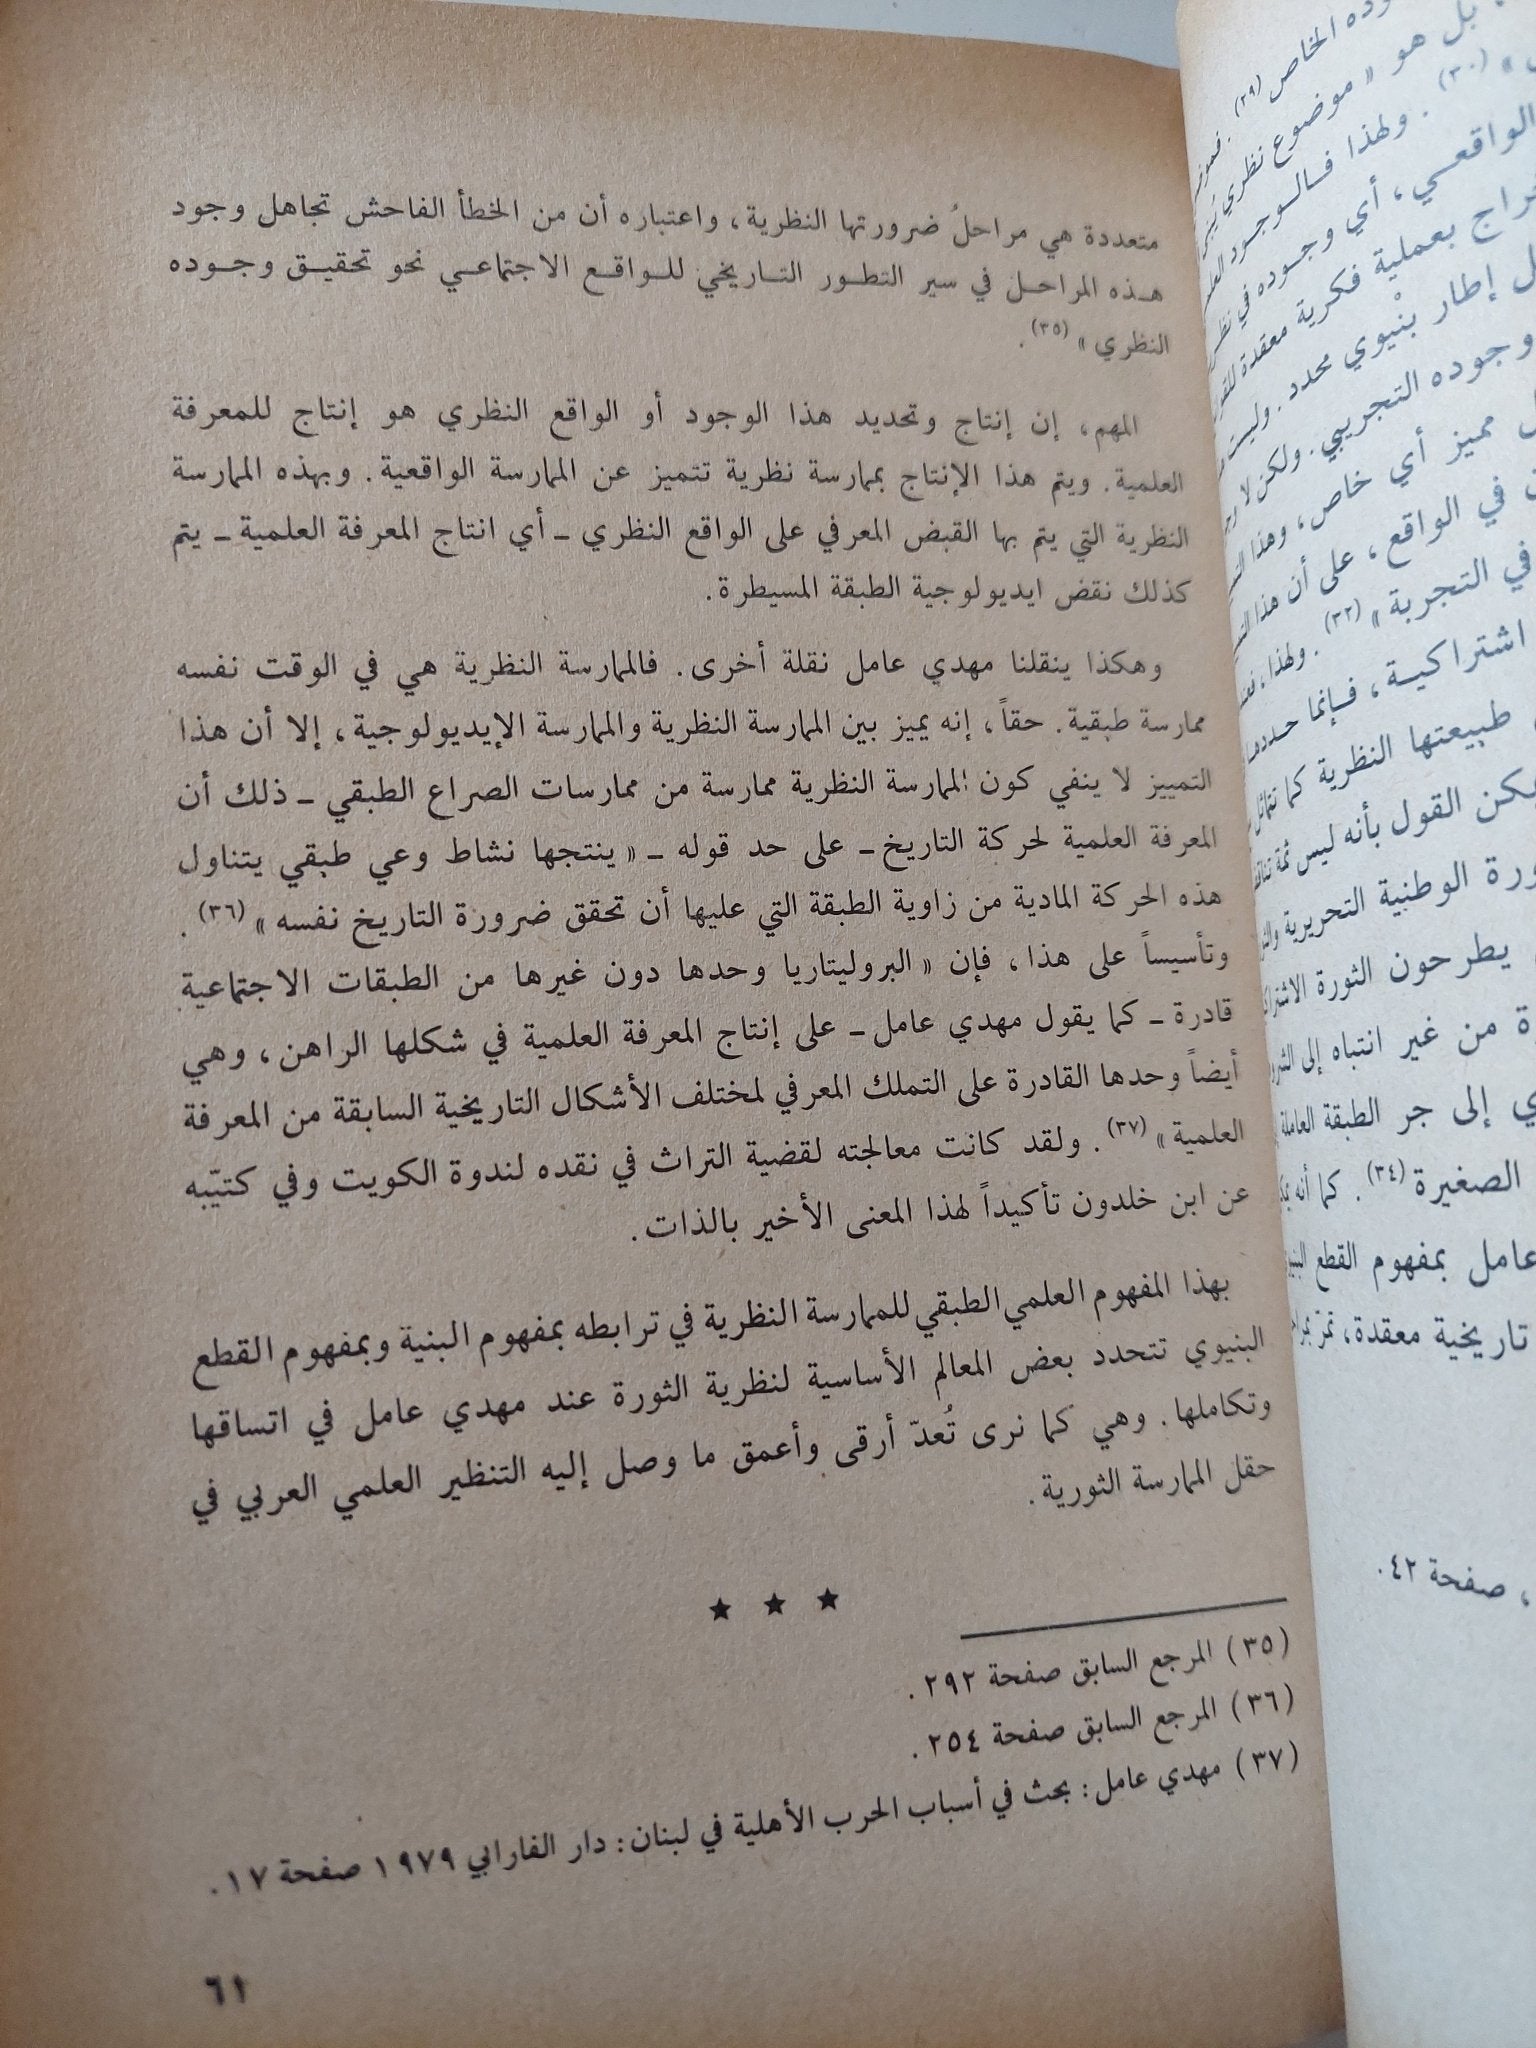 متعددة هي مراحلُ ضرورتها النظرية، واعتباره أن من الخطأ الفاحش تجاهل وجود
هذه المراحل في سير التطور التاريخي للواقع الاجتماعي نحو تحقيق وجوده
النظري» (٣٥).
المهم، إن إنتاج وتحديد هذا الوجود أو الواقع النظري هو إنتاج للمعرفة
العلمية. ويتم هذا الإنتاج بممارسة نظرية تتميز عن الممارسة الواقعية. وبهذه الممارسة
النظرية التي يتم بها القبض المعرفي على الواقع النظري ـ أي انتاج المعرفة العلمية ـ يتم
كذلك نقض ايديولوجية الطبقة المسيطرة.
وهكذا ينقلنا مهدي عامل نقلة أخرى. فالممارسة النظرية هي في الوقت نفسه
ممارسة طبقية. حقاً، إنه يميز بين الممارسة النظرية والممارسة الإيديولوجية، إلا أن هذا
التمييز لا ينفي كون الممارسة النظرية ممارسة من ممارسات الصراع الطبقي ـ ذلك أن
المعرفة العلمية لحركة التاريخ ـ على حد قوله ـ «ينتجها نشاط وعي طبقي يتناول
هذه الحركة المادية من زاوية الطبقة التي عليها أن تحقق ضرورة التاريخ نفسه» (٣٦).
وتأسيساً على هذا، فإن «البروليتاريا وحدها دون غيرها من الطبقات الاجتماعية
قادرة ـ كما يقول مهدي عامل ـ على إنتاج المعرفة العلمية في شكلها الراهن، وهي
أيضاً وحدها القادرة على التملك المعرفي لمختلف الأشكال التاريخية السابقة من المعرفة
العلمية» (٣٧). ولقد كانت معالجته لقضية التراث في نقده لندوة الكويت وفي كتيّبه
عن ابن خلدون تأكيداً لهذا المعنى الأخير بالذات.
بهذا المفهوم العلمي الطبقي للممارسة النظرية في ترابطه بمفهوم البنية وبمفهوم القطع
البنيوي تتحدد بعض المعالم الأساسية لنظرية الثورة عند مهدي عامل في اتساقها
وتكاملها. وهي كما نرى تُعدّ أرقى وأعمق ما وصل إليه التنظير العلمي العربي في
حقل الممارسة الثورية.
★ ★ ★
(٣٥) المرجع السابق صفحة ٢٩٢.
(٣٦) المرجع السابق صفحة ٢٥٤.
(٣٧) مهدي عامل: بحث في أسباب الحرب الأهلية في لبنان: دار الفارابي ١٩٧٩ صفحة ١٧.
٦١
الخاص (٢٩).
بل هو «موضوع نظري
(٣٠). ولهذا فالوجود
الواقعي، أي وجوده في
بعملية فكرية معقدة
إطار بنْيوي محدد. وليست
وجوده التجريبي. ولكن لا
مميز أي خاص، وهذا
في الواقع، على أن هذا
في التجربة» (٣٢). ولهذا،
اشتراكية، فإنما حددها
طبيعتها النظرية كما تتماثل
القول بأنه ليس ثمة
الوطنية التحريرية
يطرحون الثورة
من غير انتباه إلى
إلى جر الطبقة العاملة
الصغيرة (٣٤). كما أنه
عامل بمفهوم القطع
تاريخية معقدة، تمرّ
، صفحة ٤٢.